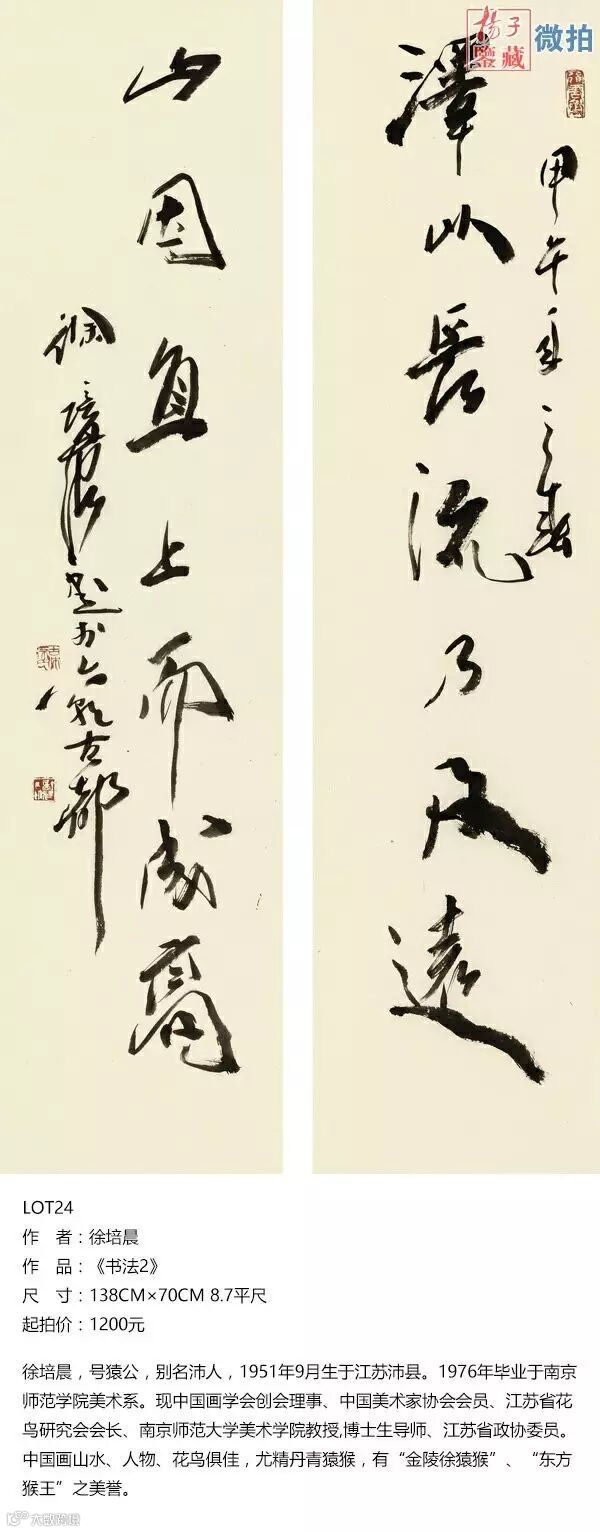 揚子
鑒藏
微拍
甲午年之春
澤以長流乃及遠
山因直上而成高
徐培晨題於六朝古都
LOT24
作 者：徐培晨
作 品：《书法2》
尺 寸：138CM×70CM 8.7平尺
起拍价：1200元
徐培晨，号猿公，别名沛人，1951年9月生于江苏沛县。1976年毕业于南京
师范学院美术系。现中国画学会创会理事、中国美术家协会会员、江苏省花
鸟研究会会长、南京师范大学美术学院教授,博士生导师、江苏省政协委员。
中国画山水、人物、花鸟俱佳，尤精丹青猿猴，有“金陵徐猿猴”、“东方
猴王”之美誉。